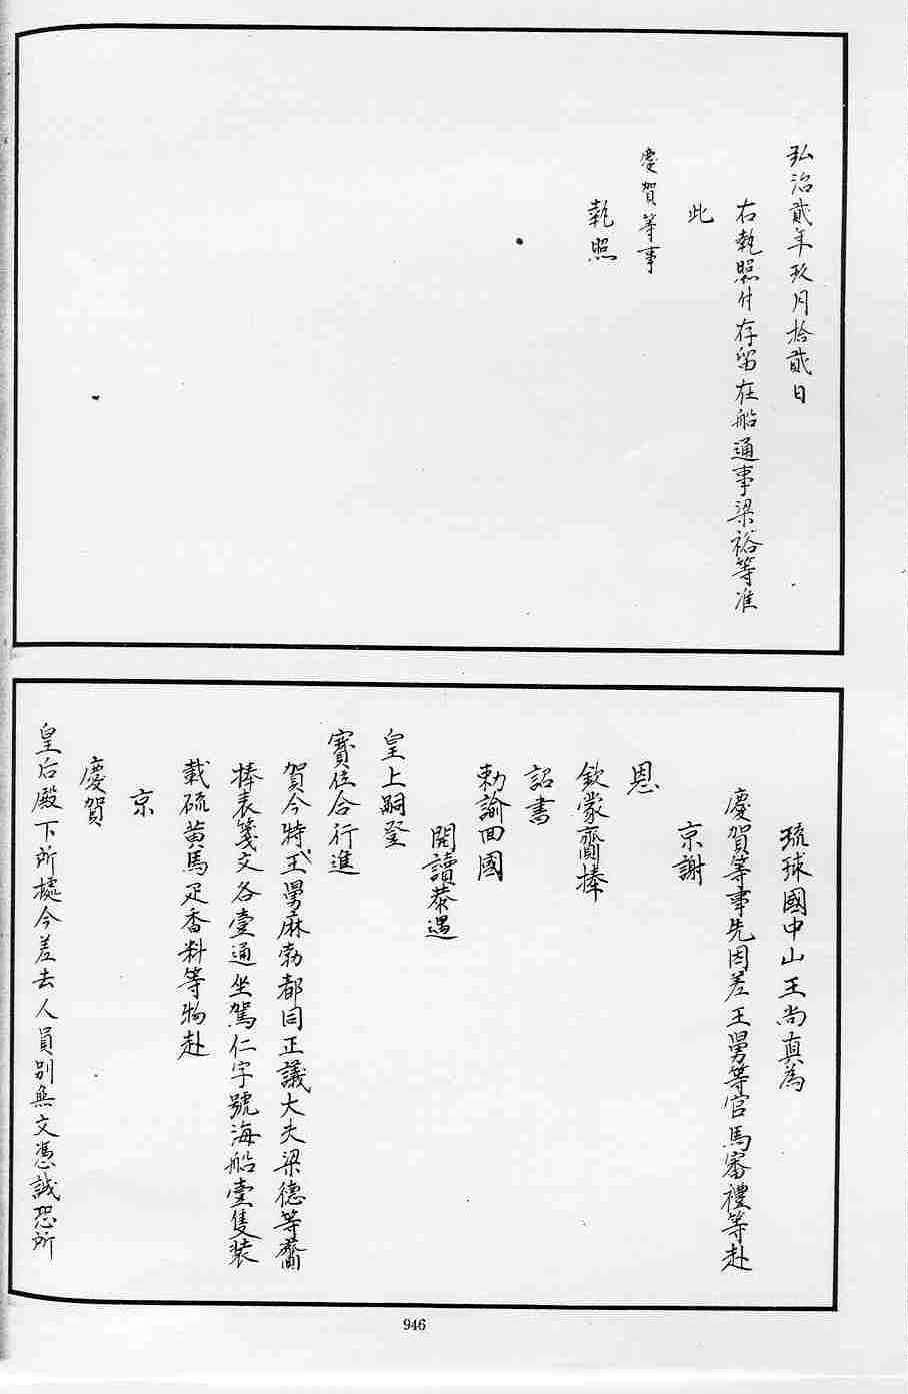 弘治貳年玖月拾貳日
右執照付存留在船通事梁裕等准
此
慶賀等事
執照
琉球國中山王尚真為
慶賀等事先因差王舅等官馬審禮等赴
京謝
恩
欽蒙齎捧
詔書
勅諭回國
開讀恭遇
皇上嗣登
寶位合行進
賀今特王舅麻勃都同正議大夫梁德等齎
捧表箋文各壹通坐駕仁字號海船壹隻裝
載硫黄馬疋香料等物赴
京
慶賀
皇后殿下所據今差去人員別無文憑誠恐所
946